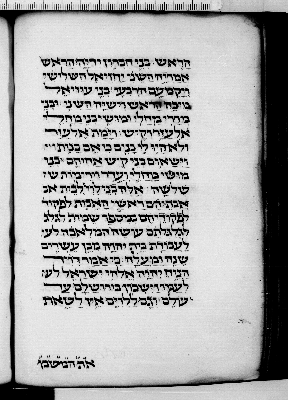 הראש בני חברון יריהו הראש
אמריה השני יחזיאל השלישי
ויקמעם הרביעי בני עזיאל
מיכה הראש וישיה השני בני
מררי מחלי ומושי בני מחלי
אלעזר וקיש וימת אלעזר
ולא היו לו בנים כי אם בנות
וישאום בני קיש אחיהם בני
מושי מחלי ועדר וירמות ש
שלשה אלה בני לוי לבית א
אבותיהם ראשי האבות לפקוד
לפקודיהם במספר שמות לגלג
לגלגלתם עשה המלאכה לע
לעבודת בית יהוה מבן עשרים
שנה ומעלה כי אמר דויד
הניח יהוה אלהי ישראל לע
לעמו וישכון בירושלם עד
לעולם וגם ללוים אין לשאת
את המשכן